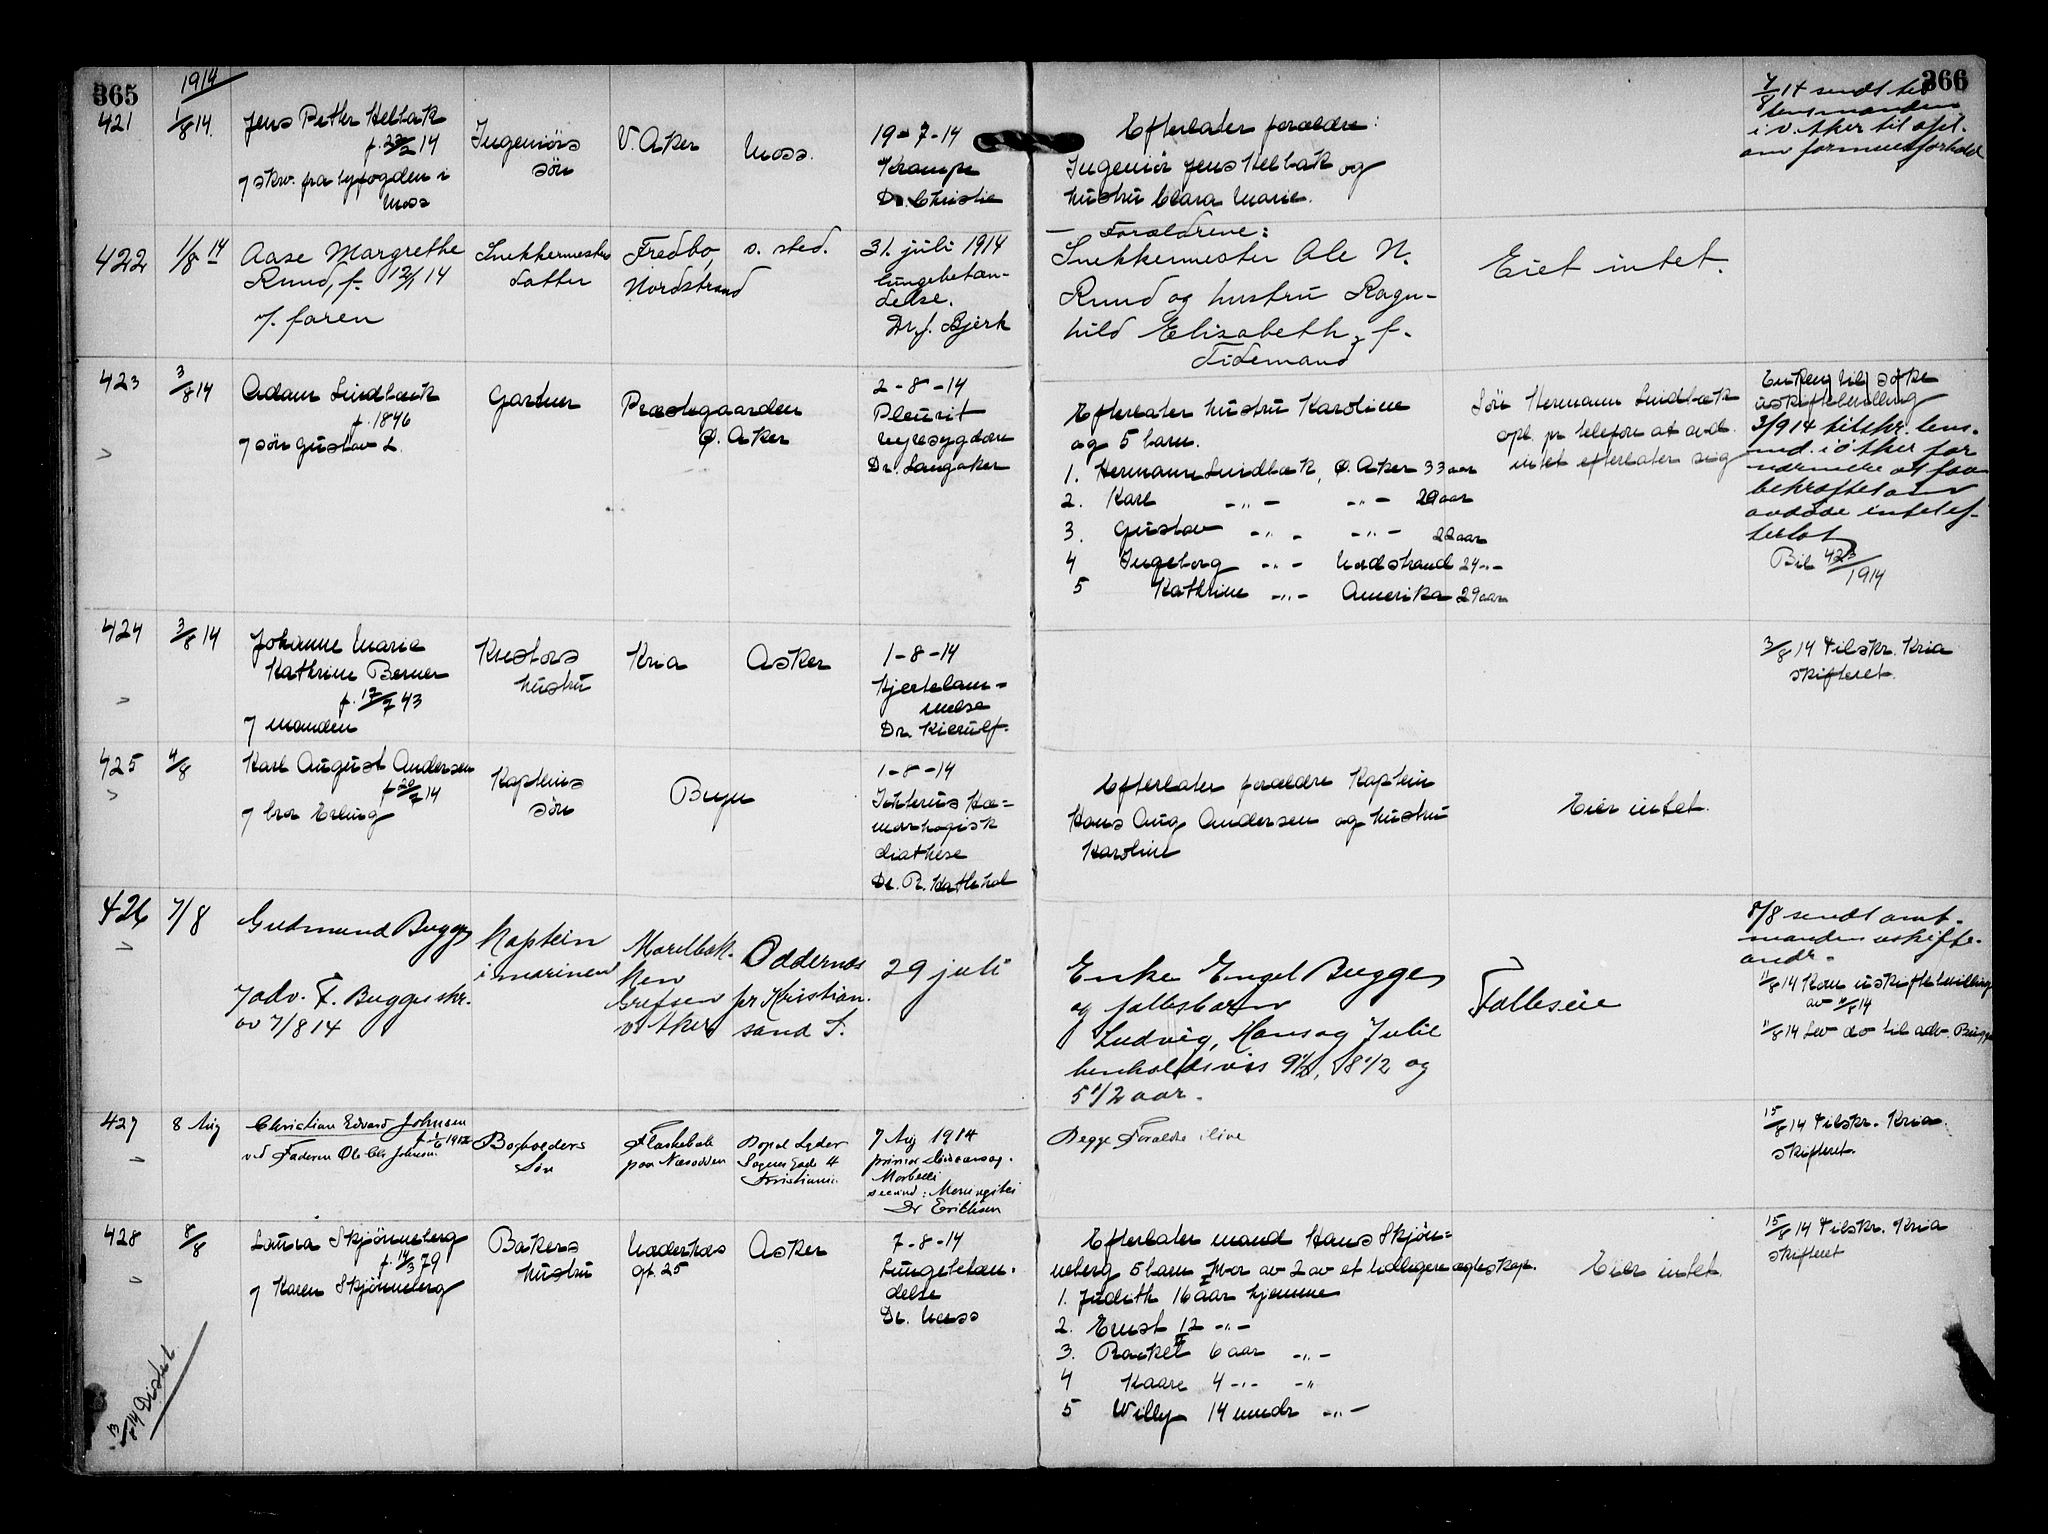 365
1914
366
421
1/8 14.
Jens Petter Helbæk
f. 23/2 14
/ skr. fra byfogden i
Moss
Ingeniørs
søn
V. Aker
Moss.
19-7-14
Krampe
Dr. Christie
Efterlater forældre:
Ingeniør Jens Helbæk og
hustru Clara Marie.
4/8 14 sendt til
lensmanden
i v. Aker til opl.
om formuesforhold
422
1/8 14
Aase Margrethe
Ruud, f. 12/1 14
/. faren
Snekkermesters
datter
Fredbo,
Nordstrand
s. sted.
31. juli 1914
lungebetæn-
delse.
Dr. J. Bjerk
Forældrene:
Snekkermester Ole N.
Ruud og hustru Ragn-
hild Elisabeth, f.
Tidemand
Eiet intet.
423
3/8 14
Adam Lindbæk
f. 1846
/ søn Gustav L.
Gartner
Præstegaarden
Ø. Aker
2-8-14
Pleurit
nyresygdom
Dr. Langaker
Efterlater hustru Karoline
og 5 barn.
1. Hermann Lindbæk, Ø. Aker 33 aar
2. Karl -"- -"- 20 aar
3. Gustav -"- -"- 22 aar
4 Ingeborg -"- Nordstrand 24 -"-
5 Kathrine -"- Amerika 29 aar
Søn Hermann Lindbæk
opl. pr telefon at avd.
intet efterlater sig
Enken vil søke
uskiftebevilling
3/9 14 tilskr. lens-
md. i Ø Aker for
nærmere at faa
bekræftet om
avdøde intet ef-
terlot
Bil 423/1914
424
3/8 14
Johanne Marie
Kathrine Berner
f. 17/7 43
/ manden
Kustors
hustru
Kria
Asker
1-8-14
Hjertelam-
melse
Dr. Kierulf.
3/8 14 tilskr. Kria
skifteret.
425
4/8
Karl August Andersen
f 20/7 14
/ bror Erling
Kapteins
søn
1-8-14
Ikterus Hæ-
morhagisk
diathese
Efterlater forældre Kaptein
Hans Aug Andersen og hustru
Karoline
Eier intet.
426
7/8
Gudmund Bugge
/ adv. F. Bugges skr.
av 7/8 14
Kaptein
i marinen
Morelbak-
ken
Grefsen
v. Aker
Oddernes
pr Kristian-
sand S.
29 juli
Enke Engel Bugge
og fællesbarn
Ludvig, Hans og Julie
henholdsvis 9 1/2, 8 1/2 og
5 1/2 aar.
Fælleseie
8/8 sendt amt-
manden uskifte-
andr.
11/8 14 Kom uskiftebevilling
av 10/8 14
11/8 14 Lev do til adv. Bugge
427
8 Aug
Christian Edvard Johnsen
ved Faderen Ole Johnsen
Bogholders
Søn
Flaskebæk
paa Næsodden
Bopæl Lyder
Sagens Gade 4
Kristiania
7 Aug 1914
Morbilli
secund: Meningitis
Dr Erichsen
Begge Forældre ilive
15/8 14 tilskr. Kria
skifteret.
428
8/8
Laura Skjønneberg
f. 14/3 79
/ Karen Skjønneberg
Bakers
hustru
gt. 25
Asker
7-8-14
Lungebetæn-
delse
Dr. Næss
Efterlater mand Hans Skjøn-
neberg 5 barn hvor av 2 av et tidligere egteskap.
1. Judith 16 aar hjemme
2. Ernst 12 -"-
3. Rakel 6 aar -"-
4 Kaare 4 -"- -"
5 Willy 14 mndr -"-
Eier intet.
15/8 14 tilskr. Kria
skifteret
13/8 14